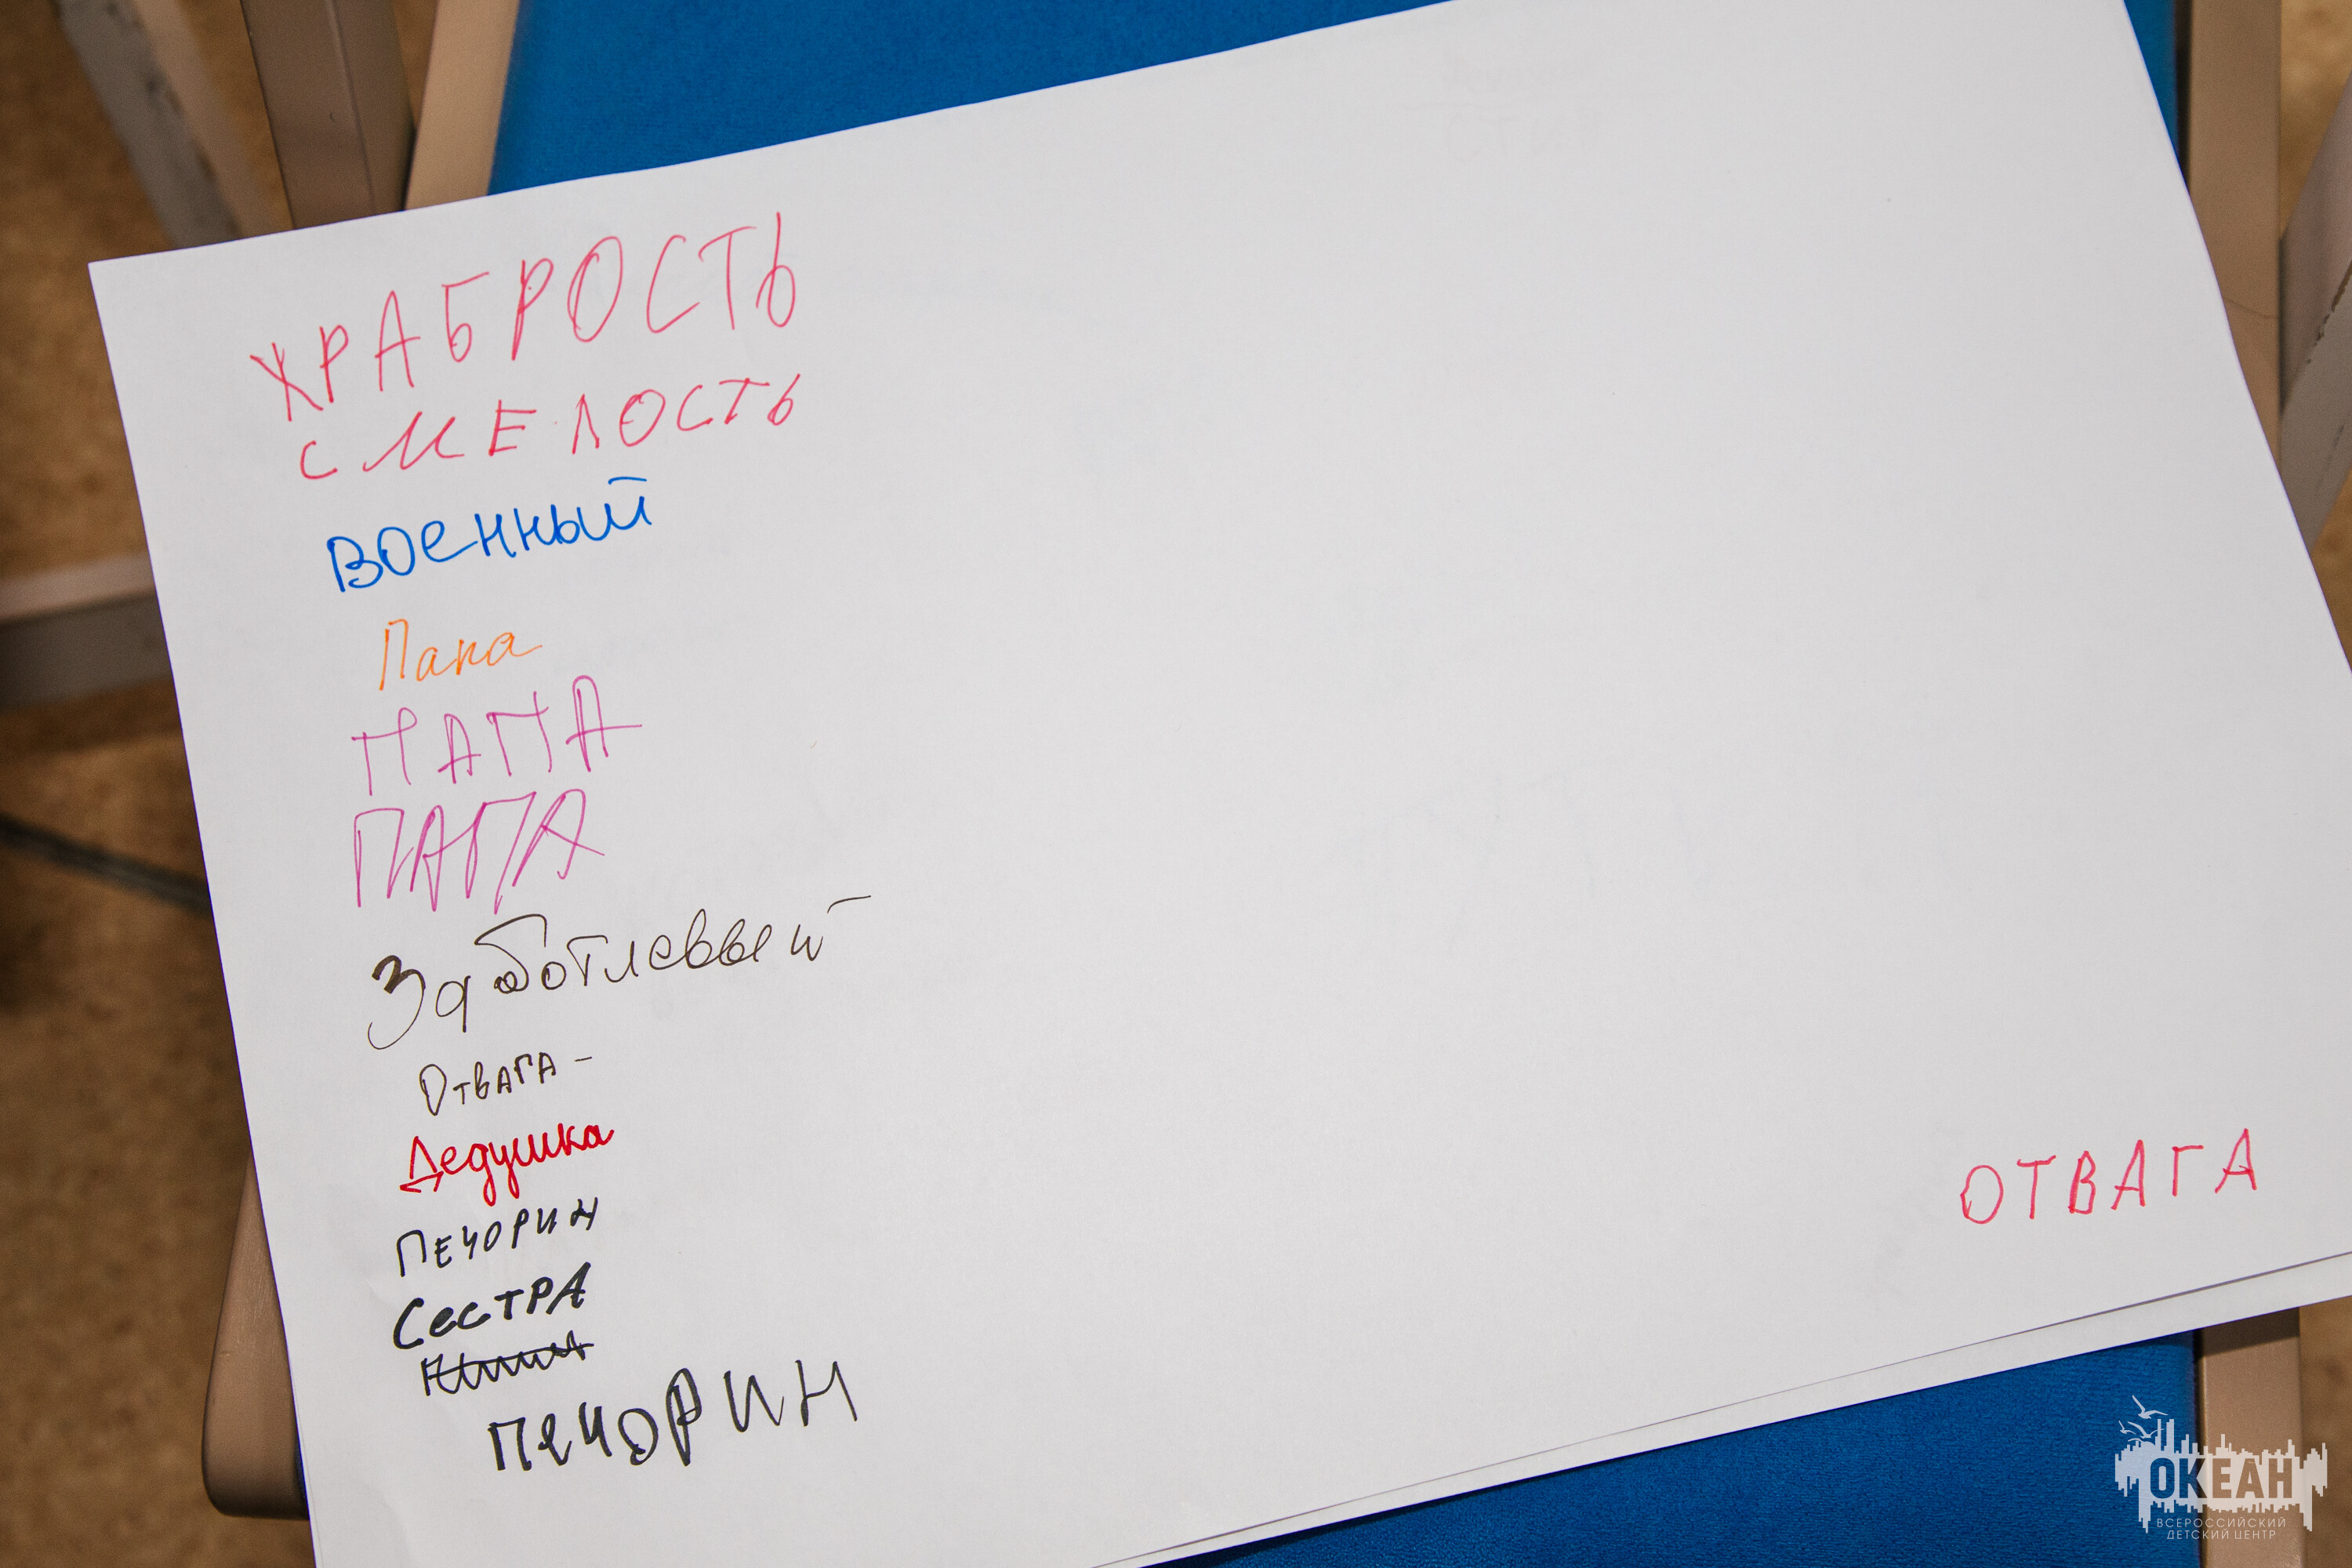 ХРАБРОСТЬ
СМЕЛОСТЬ
Военный
Папа
ПАПА
ПАПА
Заботлевый
Отвага -
Дедушка
Печорин
Сестра
печорин
ОТВАГА
ОКЕАН
ВСЕРОССИЙСКИЙ
ДЕТСКИЙ ЦЕНТР